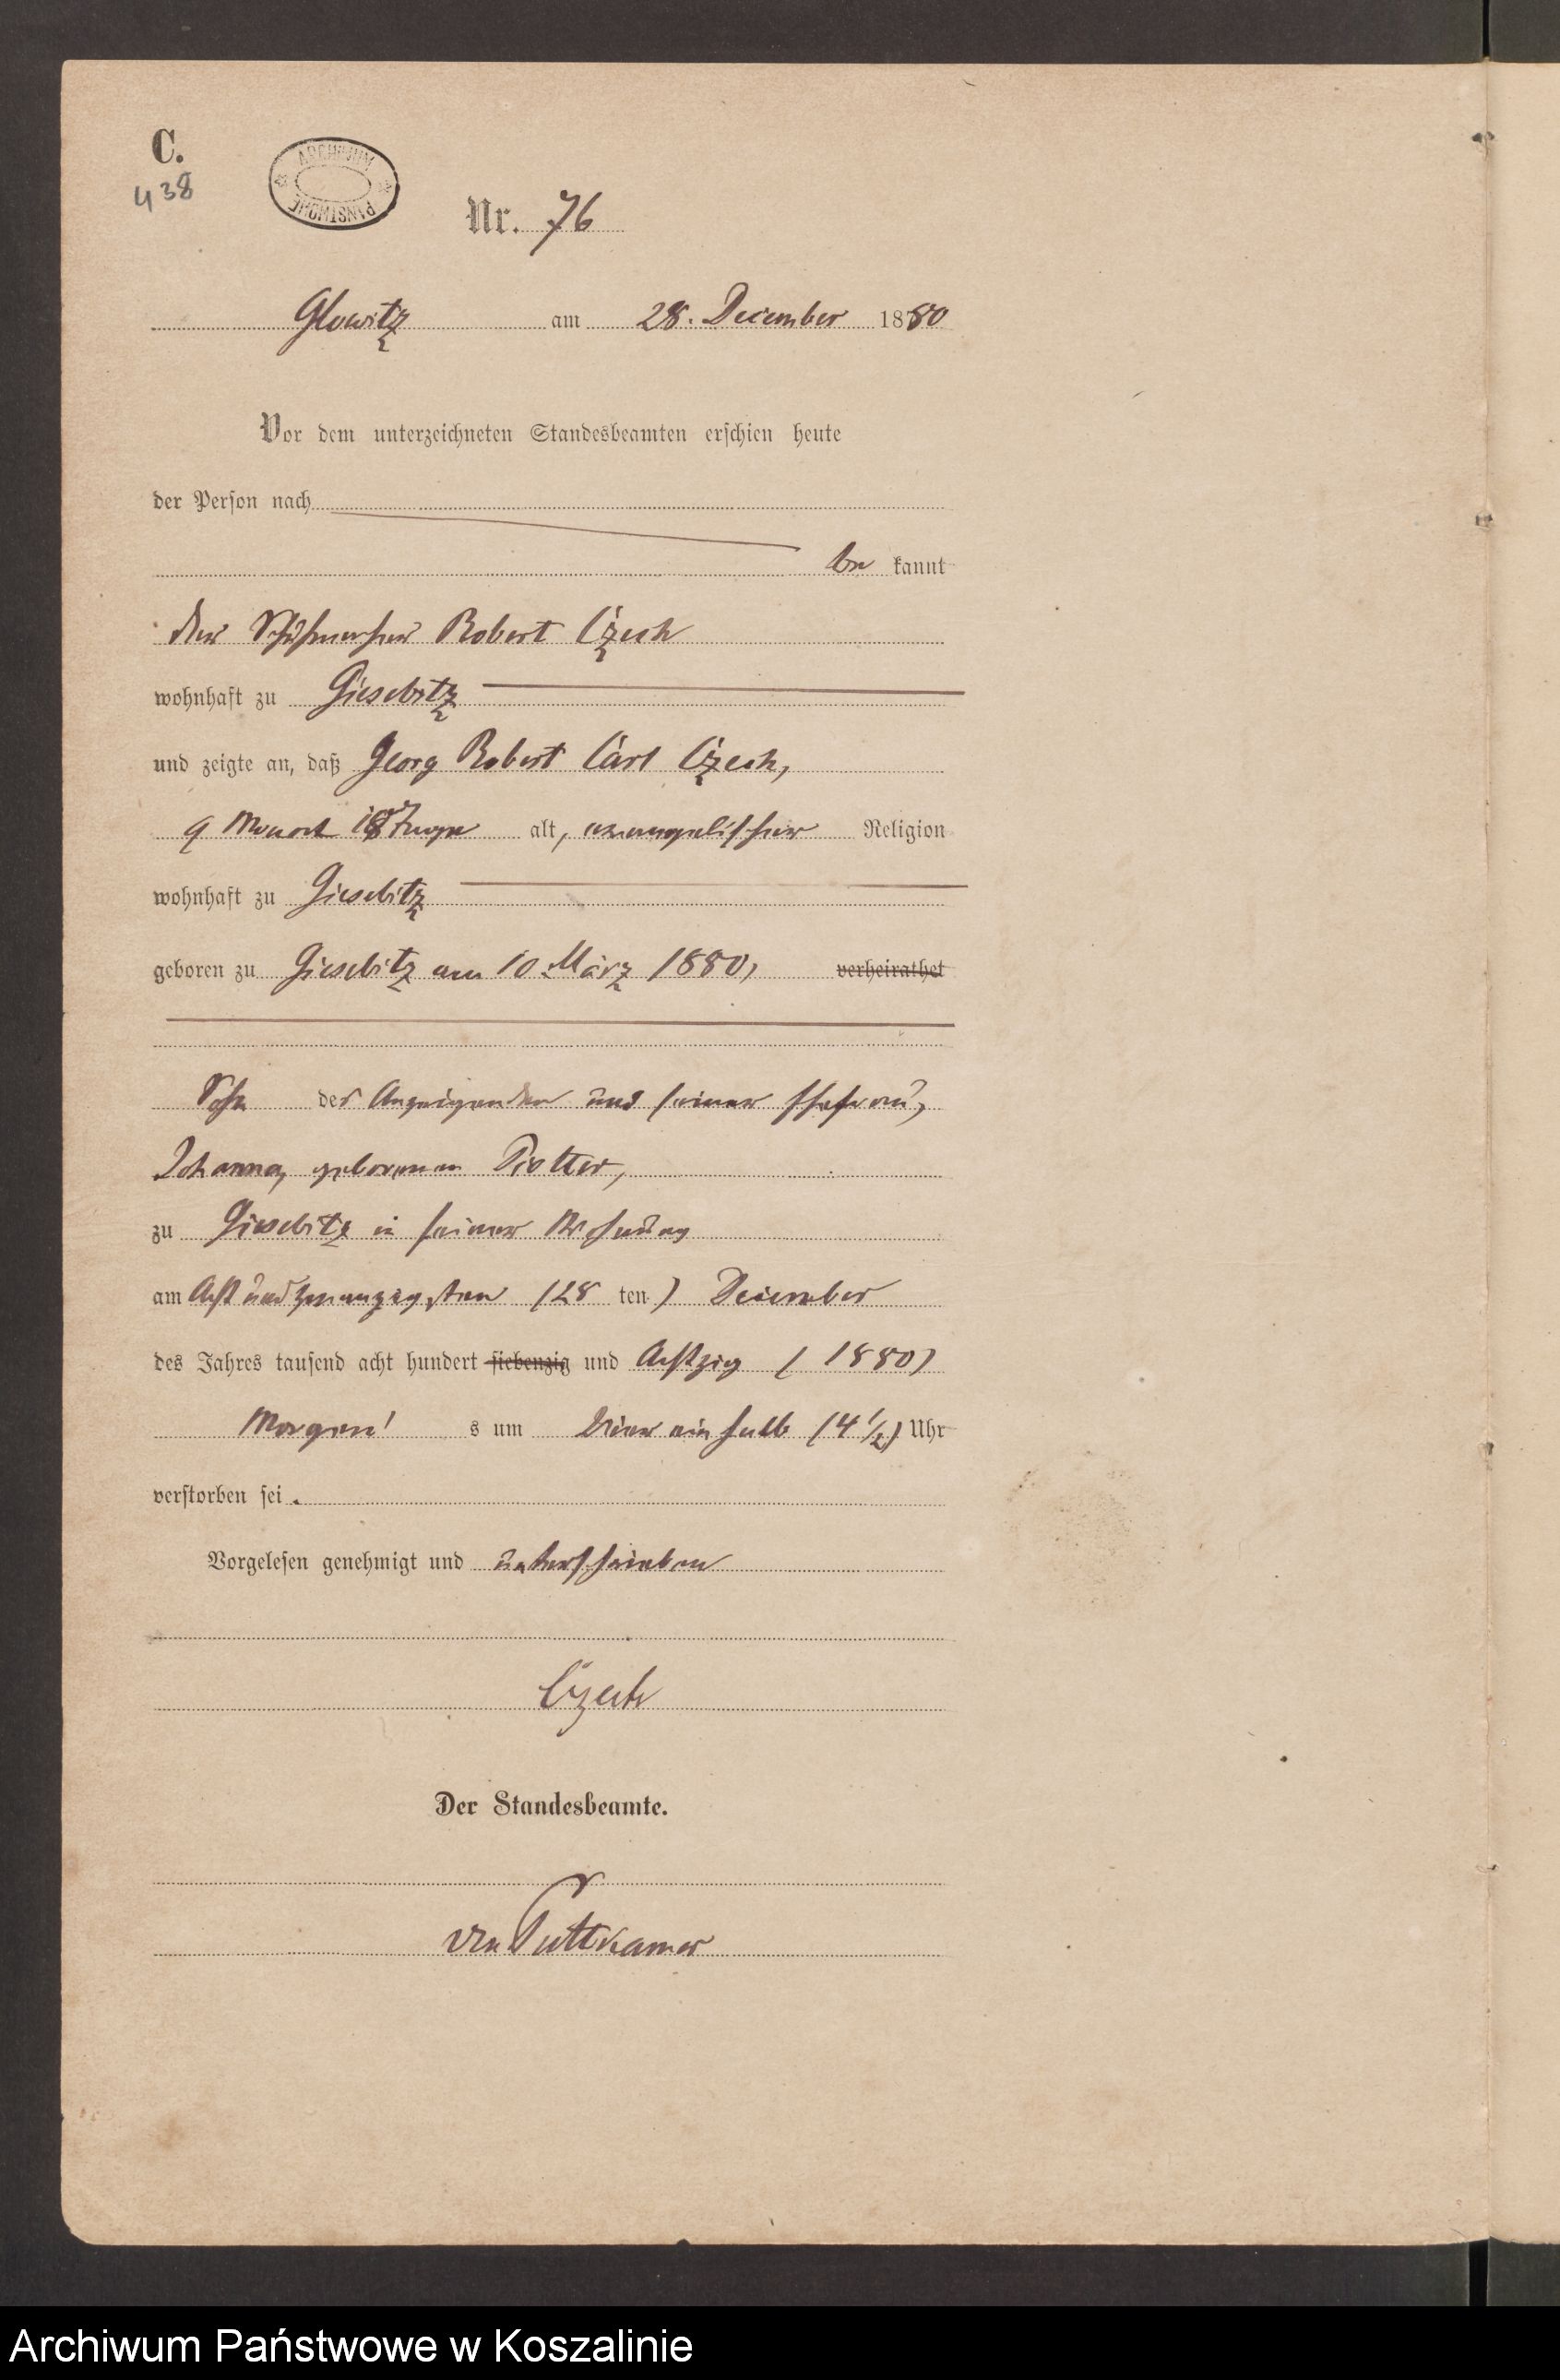 C.
438
ARCHIWUM PAŃSTWOWE
Nr. 76
Glowitz am 28. December 1880
Vor dem unterzeichneten Standesbeamten erschien heute
der Person nach
be kannt
der Schuhmacher Robert Czech
wohnhaft zu Giesebitz
und zeigte an, daß Georg Robert Carl Czech,
9 Monat 18 Tage alt, evangelischer Religion
wohnhaft zu Giesebitz
geboren zu Giesebitz am 10 März 1880, verheirathet
Sohn des Anzeigenden und seiner Ehefrau,
Johanna, geborenen
zu Giesebitz in seiner Wohnung
am Acht und zwanzigsten (28 ten) December
des Jahres tausend acht hundert siebenzig und Achtzig (1880)
Morgen's um Vier ein halb (4 1/2) Uhr
verstorben sei.
Vorgelesen genehmigt und unterschrieben
Czech
Der Standesbeamte.
von Puttkamer
Archiwum Państwowe w Koszalinie